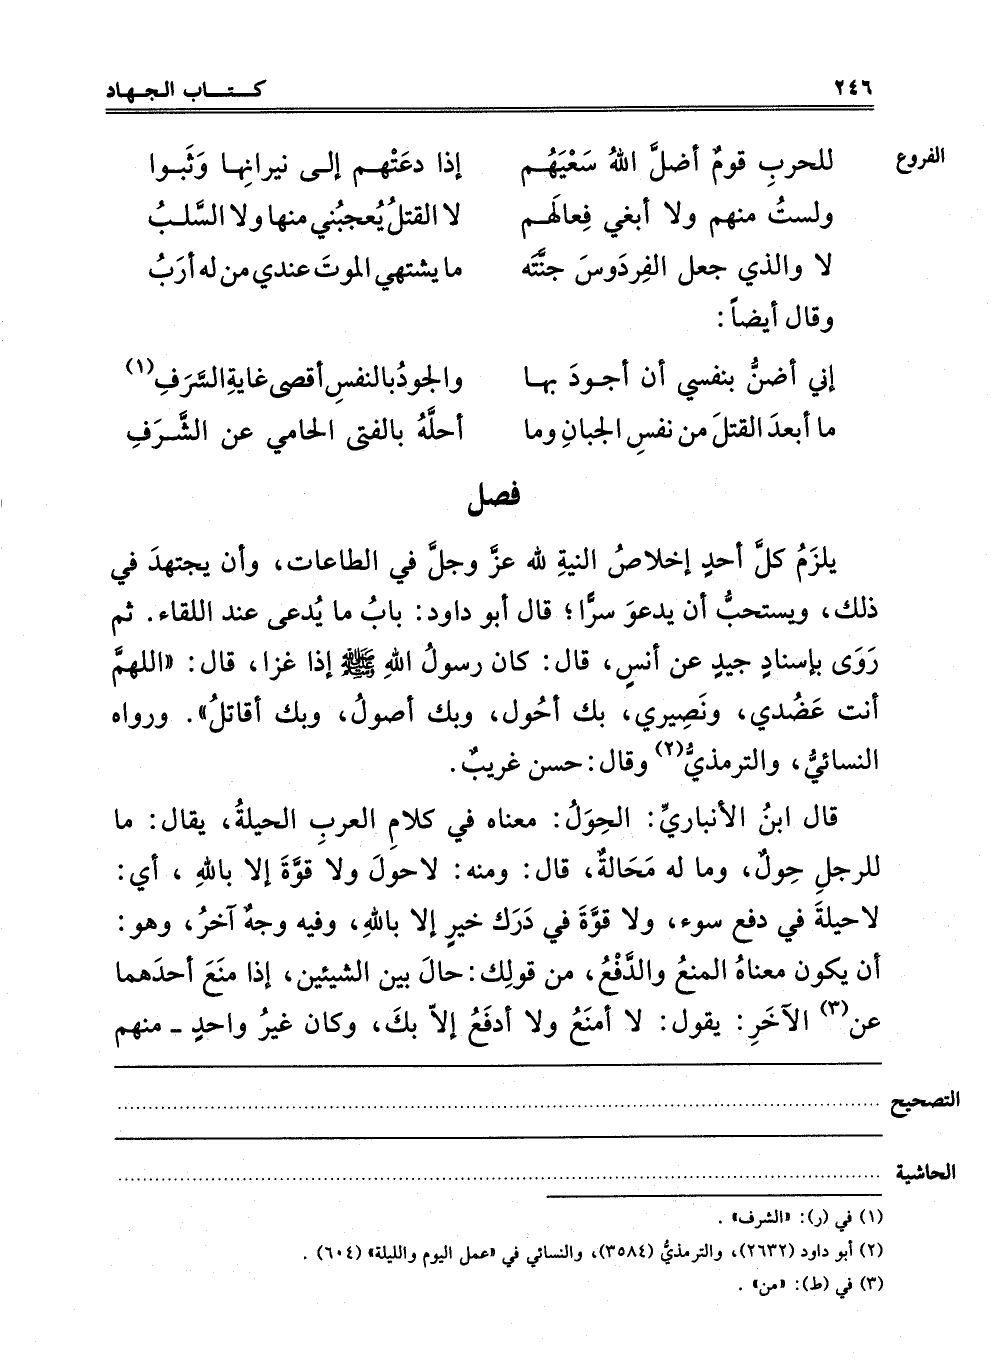 ٢٤٦ كتاب الجهاد
الفروع للحربِ قومٌ أضلَّ اللهُ سَعْيَهُم إذا دعَتْهم إلى نيرانِها وَثَبوا
ولستُ منهم ولا أبغي فِعالَهم لا القتلُ يُعجبُني منها ولا السَّلبُ
لا والذي جعل الفِردَوسَ جنَّتَه ما يشتهي الموتَ عندي من له أرَبُ
وقال أيضاً:
إني أضنُّ بنفسي أن أجودَ بها والجودُ بالنفسِ أقصى غايةِ السَّرَفِ(١)
ما أبعدَ القتلَ من نفسِ الجبانِ وما أحلَّهُ بالفتى الحامي عن الشَّرَفِ
فصل
يلزَمُ كلَّ أحدٍ إخلاصُ النيةِ لله عزَّ وجلَّ في الطاعات، وأن يجتهدَ في
ذلك، ويستحبُّ أن يدعوَ سرًّا؛ قال أبو داود: بابُ ما يُدعى عند اللقاء. ثم
رَوَى بإسنادٍ جيدٍ عن أنسٍ، قال: كان رسولُ اللهِ ﷺ إذا غزا، قال: «اللهمَّ
أنت عَضُدي، ونَصِيري، بك أحُول، وبك أصولُ، وبك أقاتلُ». ورواه
النسائيُّ، والترمذيُّ(٢) وقال: حسن غريبٌ.
قال ابنُ الأنباريِّ: الحِوَلُ: معناه في كلامِ العربِ الحيلةُ، يقال: ما
للرجلِ حِولٌ، وما له مَحَالةٌ، قال: ومنه: لاحولَ ولا قوَّةَ إلا باللهِ ، أي:
لاحيلةَ في دفعِ سوء، ولا قوَّةَ في دَرَك خيرٍ إلا باللهِ، وفيه وجهٌ آخرُ، وهو:
أن يكون معناهُ المنعُ والدَّفْعُ، من قولِك: حالَ بين الشيئين، إذا منَعَ أحدَهما
عن(٣) الآخَرِ: يقول: لا أمنَعُ ولا أدفَعُ إلاّ بكَ، وكان غيرُ واحدٍ ـ منهم
التصحيح
الحاشية
(١) في (ر): «الشرف» .
(٢) أبو داود (٢٦٣٢)، والترمذيُّ (٣٥٨٤)، والنسائي في «عمل اليوم والليلة» (٦٠٤) .
(٣) في (ط): «من» .